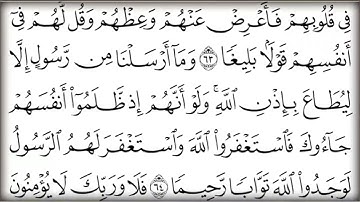 فِى قُلُوبِهِمْ فَأَعْرِضْ عَنْهُمْ وَعِظْهُمْ وَقُل لَّهُمْ فِىٓ
أَنفُسِهِمْ قَوْلًۢا بَلِيغًا ٦٣ وَمَآ أَرْسَلْنَا مِن رَّسُولٍ إِلَّا
لِيُطَاعَ بِإِذْنِ ٱللَّهِ ۚ وَلَوْ أَنَّهُمْ إِذ ظَّلَمُوٓا۟ أَنفُسَهُمْ
جَآءُوكَ فَٱسْتَغْفَرُوا۟ ٱللَّهَ وَٱسْتَغْفَرَ لَهُمُ ٱلرَّسُولُ
لَوَجَدُوا۟ ٱللَّهَ تَوَّابًا رَّحِيمًا ٦٤ فَلَا وَرَبِّكَ لَا يُؤْمِنُونَ